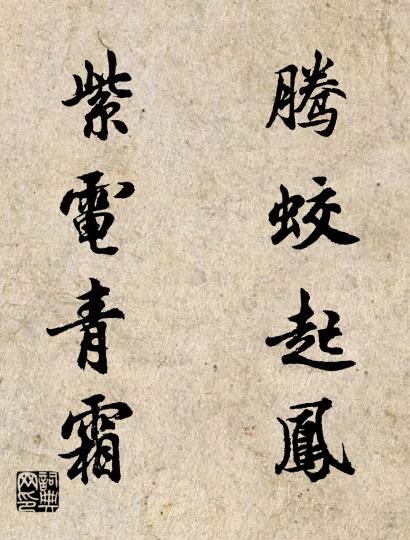 騰蛟起鳳
紫電青霜
詞典网印